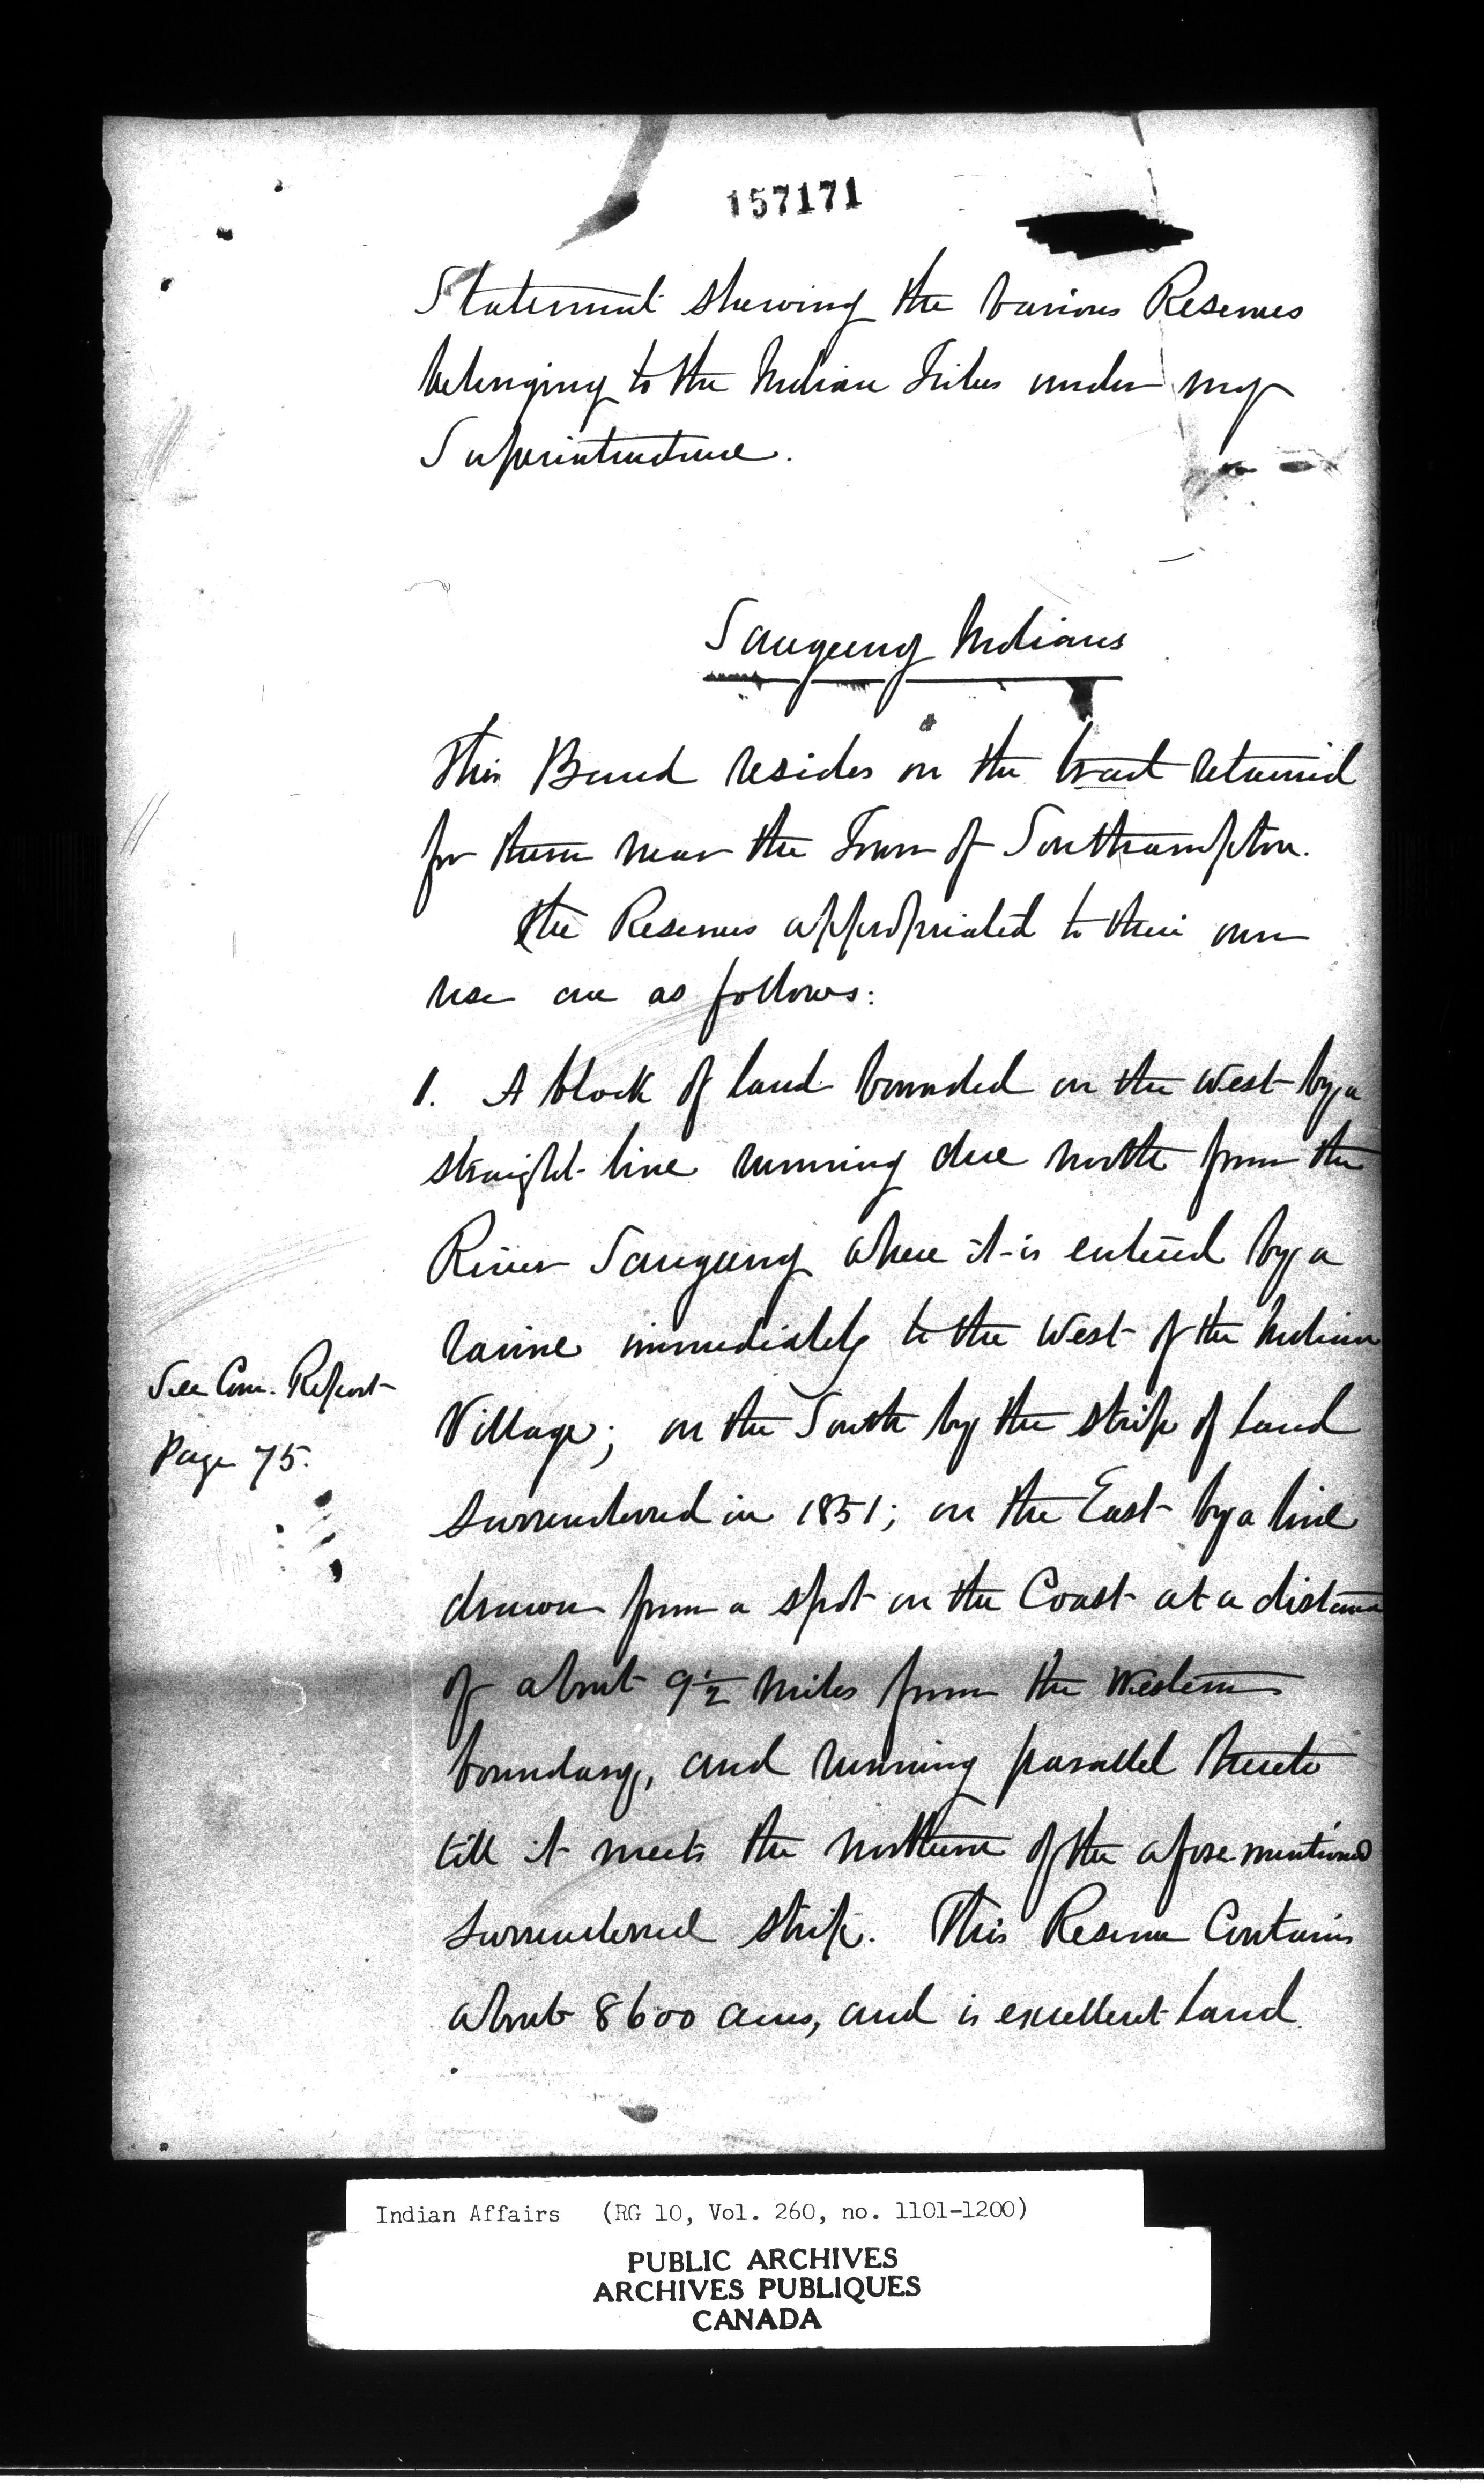 157171
Statement shewing the various Reserves
belonging to the Indian Tribes under my
Superintendence.
Saugeeng Indians
This Band resides on the tract retained
for them near the Town of Southampton.
The Reserves appropriated to their own
use are as follows:
1. A block of land bounded on the West by a
straight line running due north from the
River Saugeeng where it is entered by a
ravine immediately to the West of the Indian
See Com. Report
Village; on the South by the strip of land
Page 75.
surrendered in 1851; on the East by a line
drawn from a spot on the Coast at a distance
of about 9½ miles from the Western
boundary, and running parallel thereto
till it meets the northern of the aforementioned
surrendered strip. This Reserve Contains
about 8600 acres, and is excellent land.
Indian Affairs (RG 10, Vol. 260, no. 1101-1200)
PUBLIC ARCHIVES
ARCHIVES PUBLIQUES
CANADA